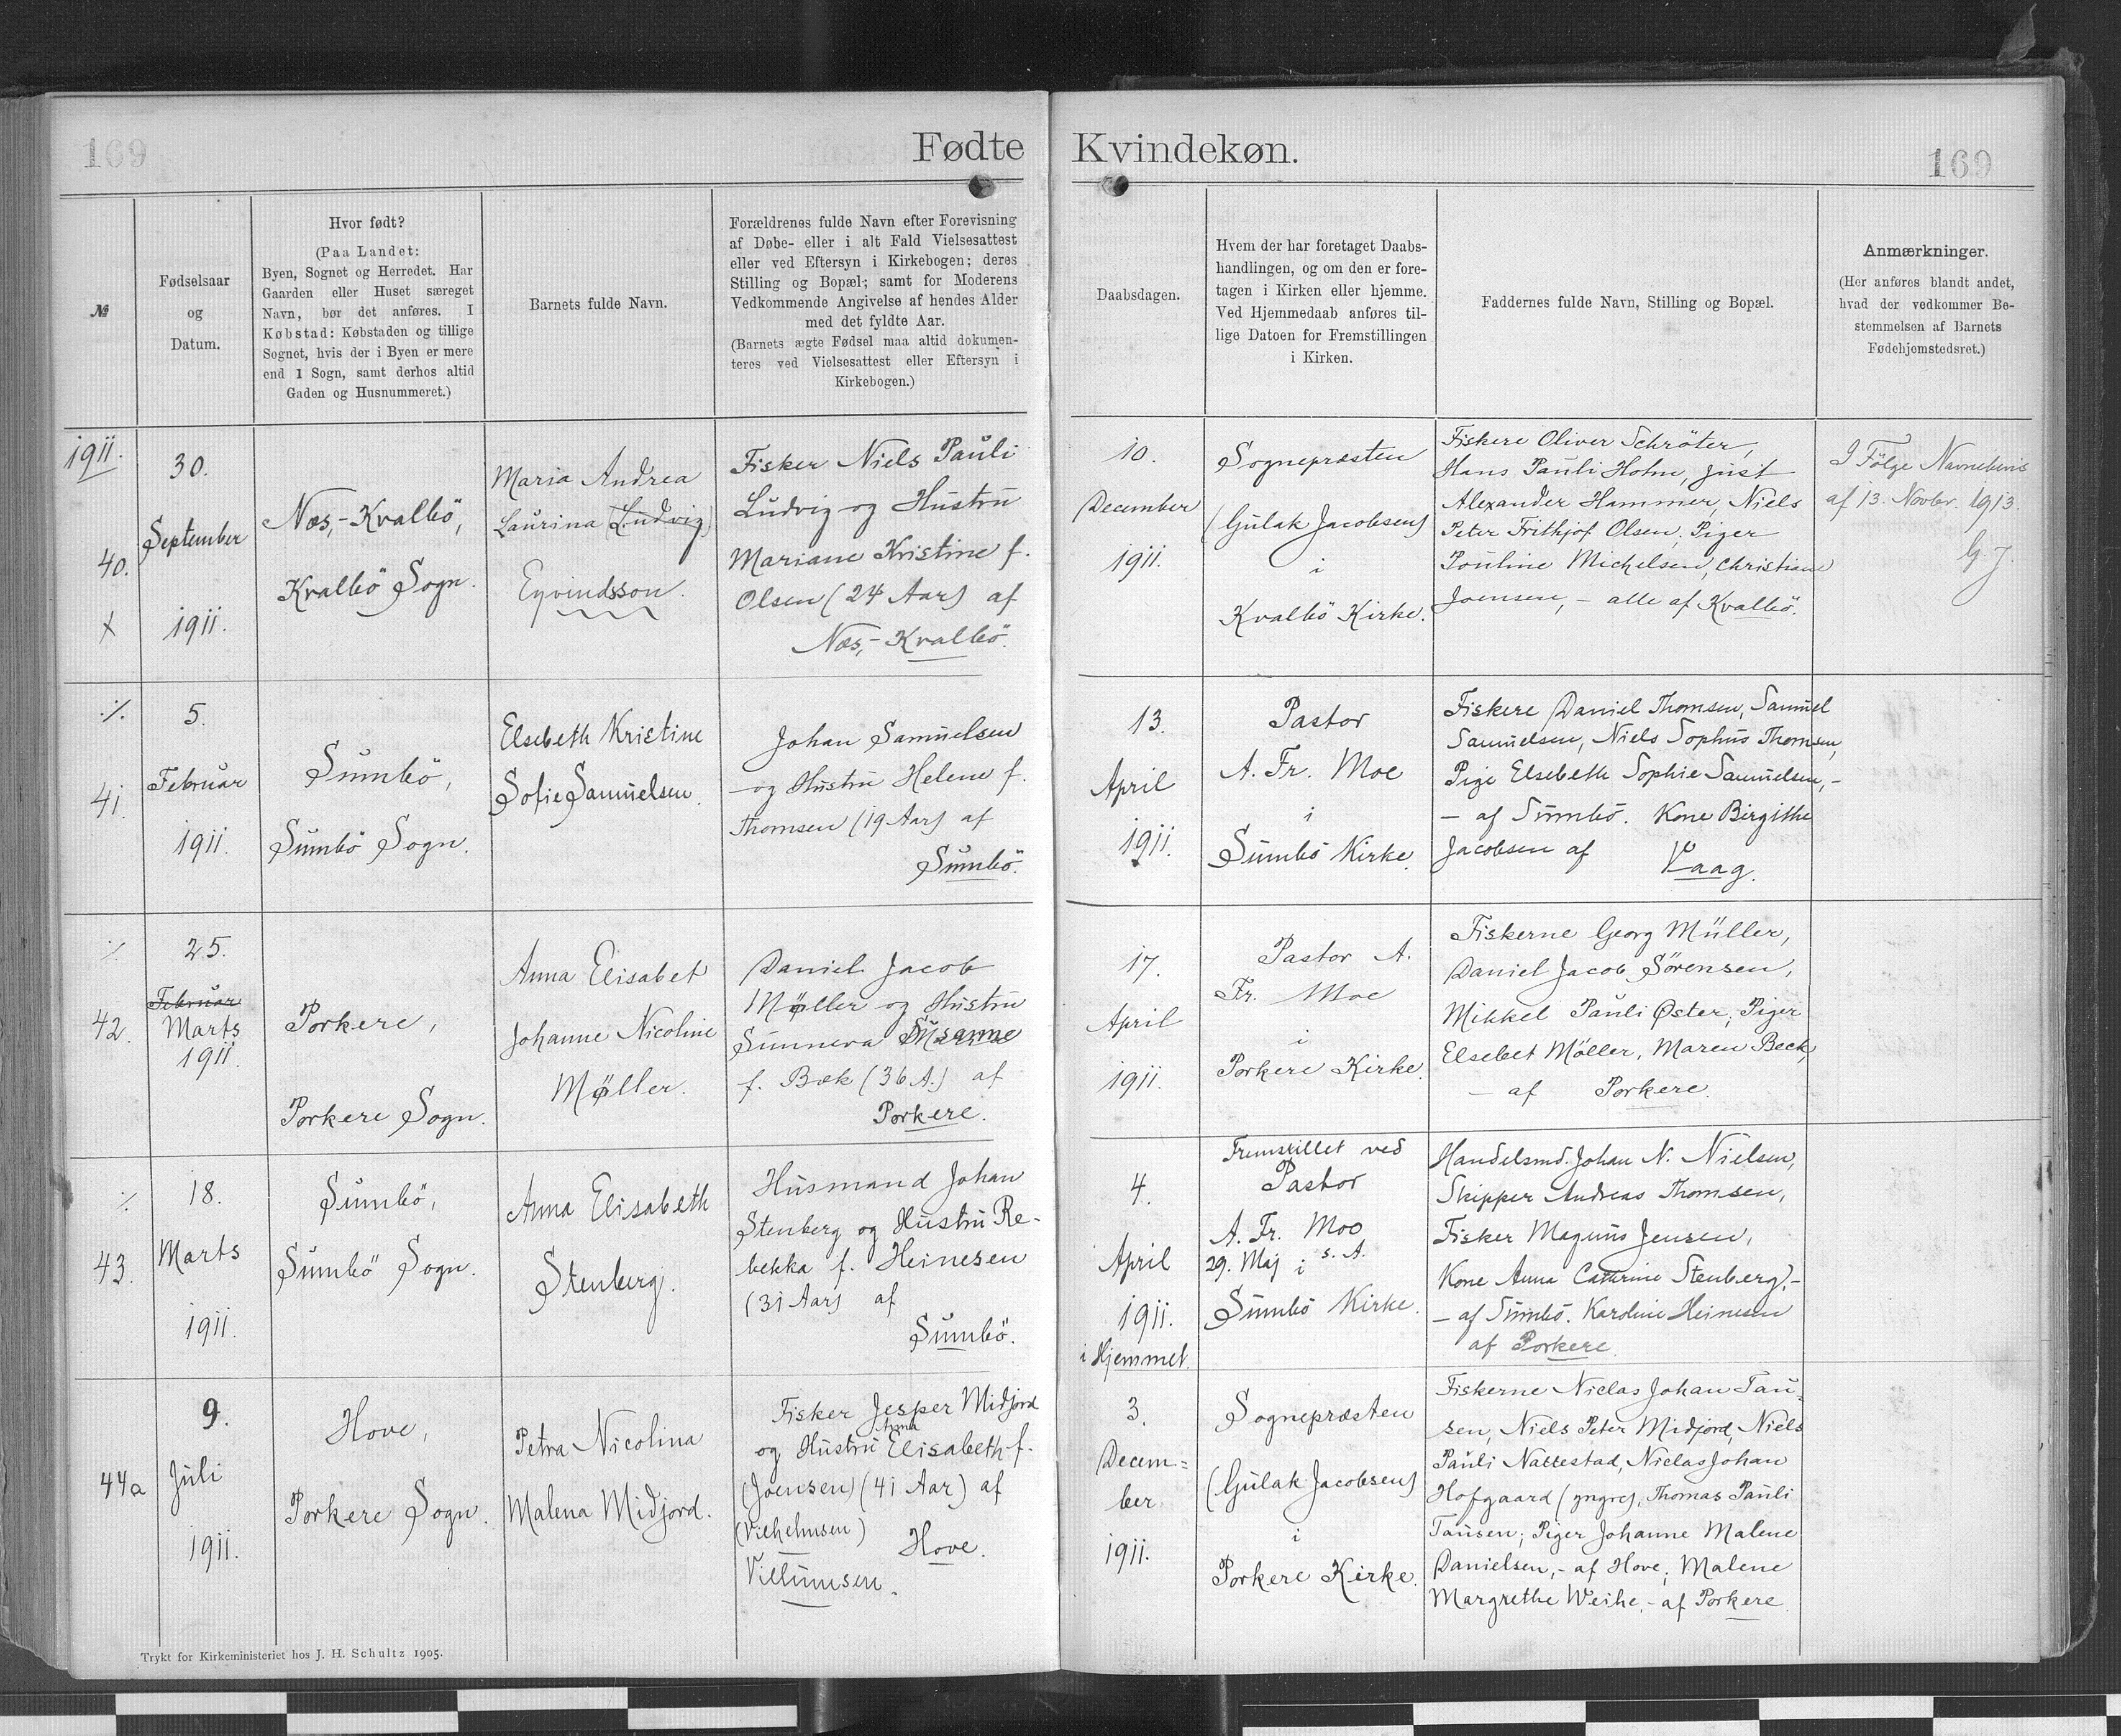 169
Fødte
№
Fødselsaar
og
Datum.
Hvor født?
(Paa Landet:
Byen, Sognet og Herredet. Har
Gaarden eller Huset særeget
Navn, bør det anføres. I
Købstad: Købstaden og tillige
Sognet, hvis der i Byen er mere
end 1 Sogn, samt derhos altid
Gaden og Husnummeret.)
Barnets fulde Navn.
Forældrenes fulde Navn efter Forevisning
af Døbe- eller i alt Fald Vielsesattest
eller ved Eftersyn i Kirkebogen; deres
Stilling og Bopæl; samt for Moderens
Vedkommende Angivelse af hendes Alder
med det fyldte Aar.
(Barnets ægte Fødsel maa altid dokumen-
teres ved Vielsesattest eller Eftersyn i
Kirkebogen.)
1911.
40.
X
30.
September
1911.
Næs,-Kvalbö,
Kvalbö Sogn.
Maria Andrea
Laurina (Ludvig)
Eyvindsson.
Fisker Niels Pauli
Ludvig og Hustru
Mariane Kristine f.
Olsen (24 Aar) af
Næs,-Kvalbö.
·/.
41.
5.
Februar
1911.
Sumbö,
Sumbö Sogn.
Elsebeth Kristine
Sofie Samuelsen.
Johan Samuelsen
og Hustru Helene f.
Thomsen (19 Aar) af
Sumbö.
·/.
42.
25.
Februar
Marts
1911.
Porkere,
Porkere Sogn.
Anna Elisabet
Johanne Nicoline
Møller.
Daniel Jacob
Møller og Hustru
Sunneva Susanne
f. Bæk (36 A.) af
Porkere.
·/.
43.
18.
Marts
1911.
Sumbö,
Sumbö Sogn.
Anna Elisabeth
Stenberg.
Husmand Johan
Stenberg og Hustru Re-
bekka f. Heinesen
(31 Aar) af
Sumbö.
44a
9.
Juli
1911.
Hove,
Porkere Sogn.
Petra Nicolina
Malena Midjord.
Fisker Jesper Midjord
Anna
og Hustru Elisabeth f.
(Joensen) (41 Aar) af
(Vilhelmsen)
Hove.
Villumsen.
Trykt for Kirkeministeriet hos J. H. Schultz 1905.
Kvindekøn.
169
Daabsdagen.
Hvem der har foretaget Daabs-
handlingen, og om den er fore-
tagen i Kirken eller hjemme.
Ved Hjemmedaab anføres til-
lige Datoen for Fremstillingen
i Kirken.
Faddernes fulde Navn, Stilling og Bopæl.
Anmærkninger.
(Her anføres blandt andet,
hvad der vedkommer Be-
stemmelsen af Barnets
Fødehjemstedsret.)
10.
December
1911.
Sognepræsten
(Gulak Jacobsen)
i
Kvalbö Kirke.
Fiskere Oliver Schröter,
Hans Pauli Holm, Just
Alexander Hammer, Niels
Peter Frithjof Olsen, Piger
Pouline Michelsen, Christiane
Joensen, - alle af Kvalbö.
I Følge Navnebevis
af 13. Novbr. 1913.
G. J.
13.
April
1911.
Pastor
A. Fr. Moe
i
Sumbö Kirke.
Fiskere Daniel Thomsen, Samuel
Samuelsen, Niels Sophus Thomsen,
Pige Elsebeth Sophie Samuelsen, -
- af Sumbö. Kone Birgithe
Jacobsen af Vaag.
17.
April
1911.
Pastor A.
Fr. Moe
i
Porkere Kirke.
Fiskerne Georg Müller,
Daniel Jacob Sörensen,
Mikkel Pauli Øster, Piger
Elsebet Möller, Maren Beck,
- af Porkere.
4.
April
1911.
i Hjemmet.
Fremstillet ved
Pastor
A. Fr. Moe
29. Maj s. A.
i
Sumbö Kirke.
Handelsmd. Johan N. Nielsen,
Skipper Andreas Thomsen,
Fisker Magnus Jensen,
Kone Anna Cathrine Stenberg,-
- af Sumbö. Karoline Heinesen
af Porkere.
3.
Decem=
ber
1911.
Sognepræsten
(Gulak Jacobsen)
i
Porkere Kirke.
Fiskerne Niclas Johan Tau-
sen, Niels Peter Midjord, Niels
Pauli Nattestad, Niclas Johan
Hofgaard (yngre), Thomas Pauli
Tausen; Piger Johanne Malene
Danielsen,- af Hove; Malene
Margrethe Weihe,- af Porkere.